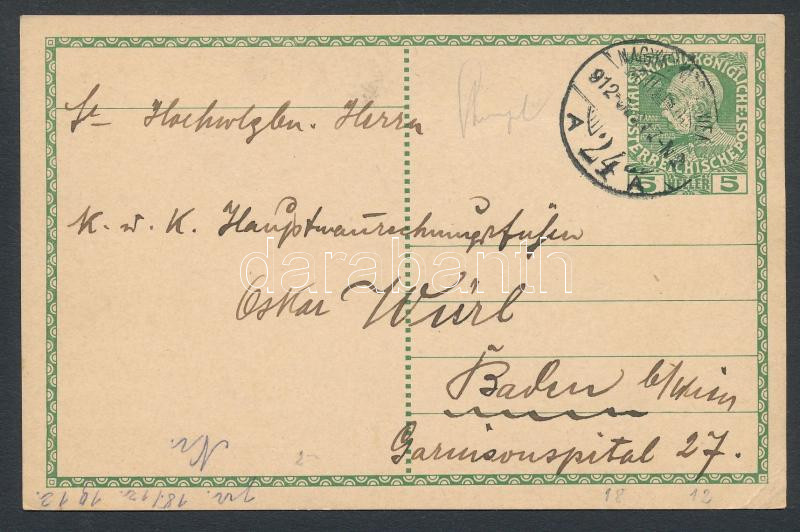 Sr Hochwolgbn. Herrn
K. u. K. Hauptmannrechnungsführer
Oskar Würl
Baden b/Wien
Garnisonspital 27.
KAISERLICHE KÖNIGLICHE
ÖSTERREICHISCHE POST
5 HELLER 5
912
A 24 A
darabanth
Nr.
18/12. 1912.
18 12